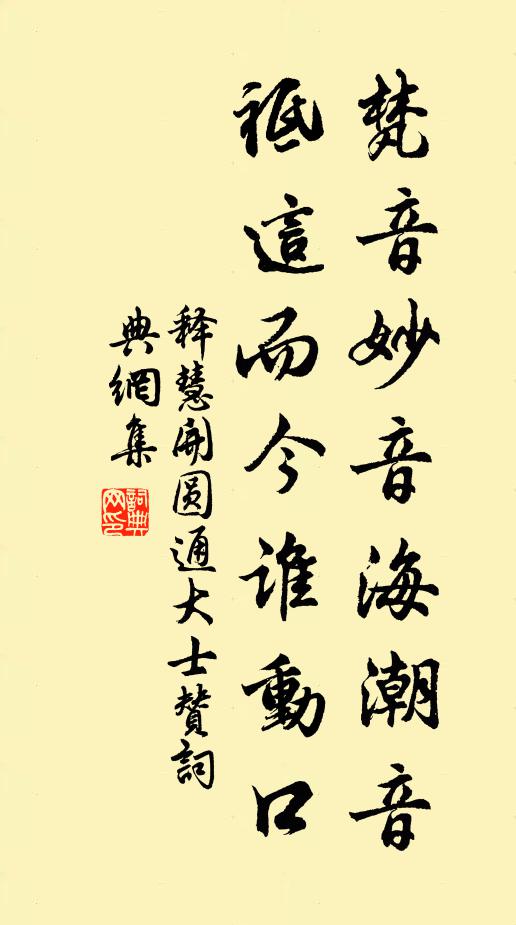 梵音妙音海潮音
祗這而今誰動口
释慧開圆通大士贊詞
典網集
詞典
网印